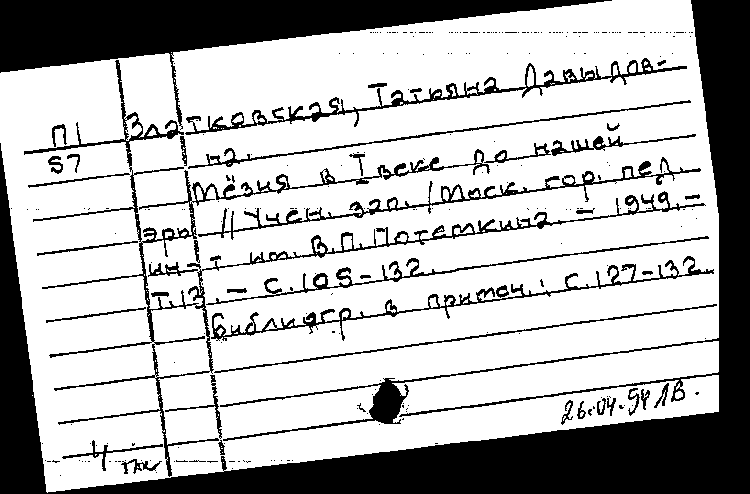 П1 Златковская, Татьяна Давыдов-
S7 на.
Мёзия в I веке до нашей
эры // Учен. зап. / Моск. гор. пед.
ин-т им. В.П. Потемкина. - 1949. -
Т.13. - С.105-132.
Библиогр. в примеч.: с.127-132.
26.04.94 ЛВ.
4